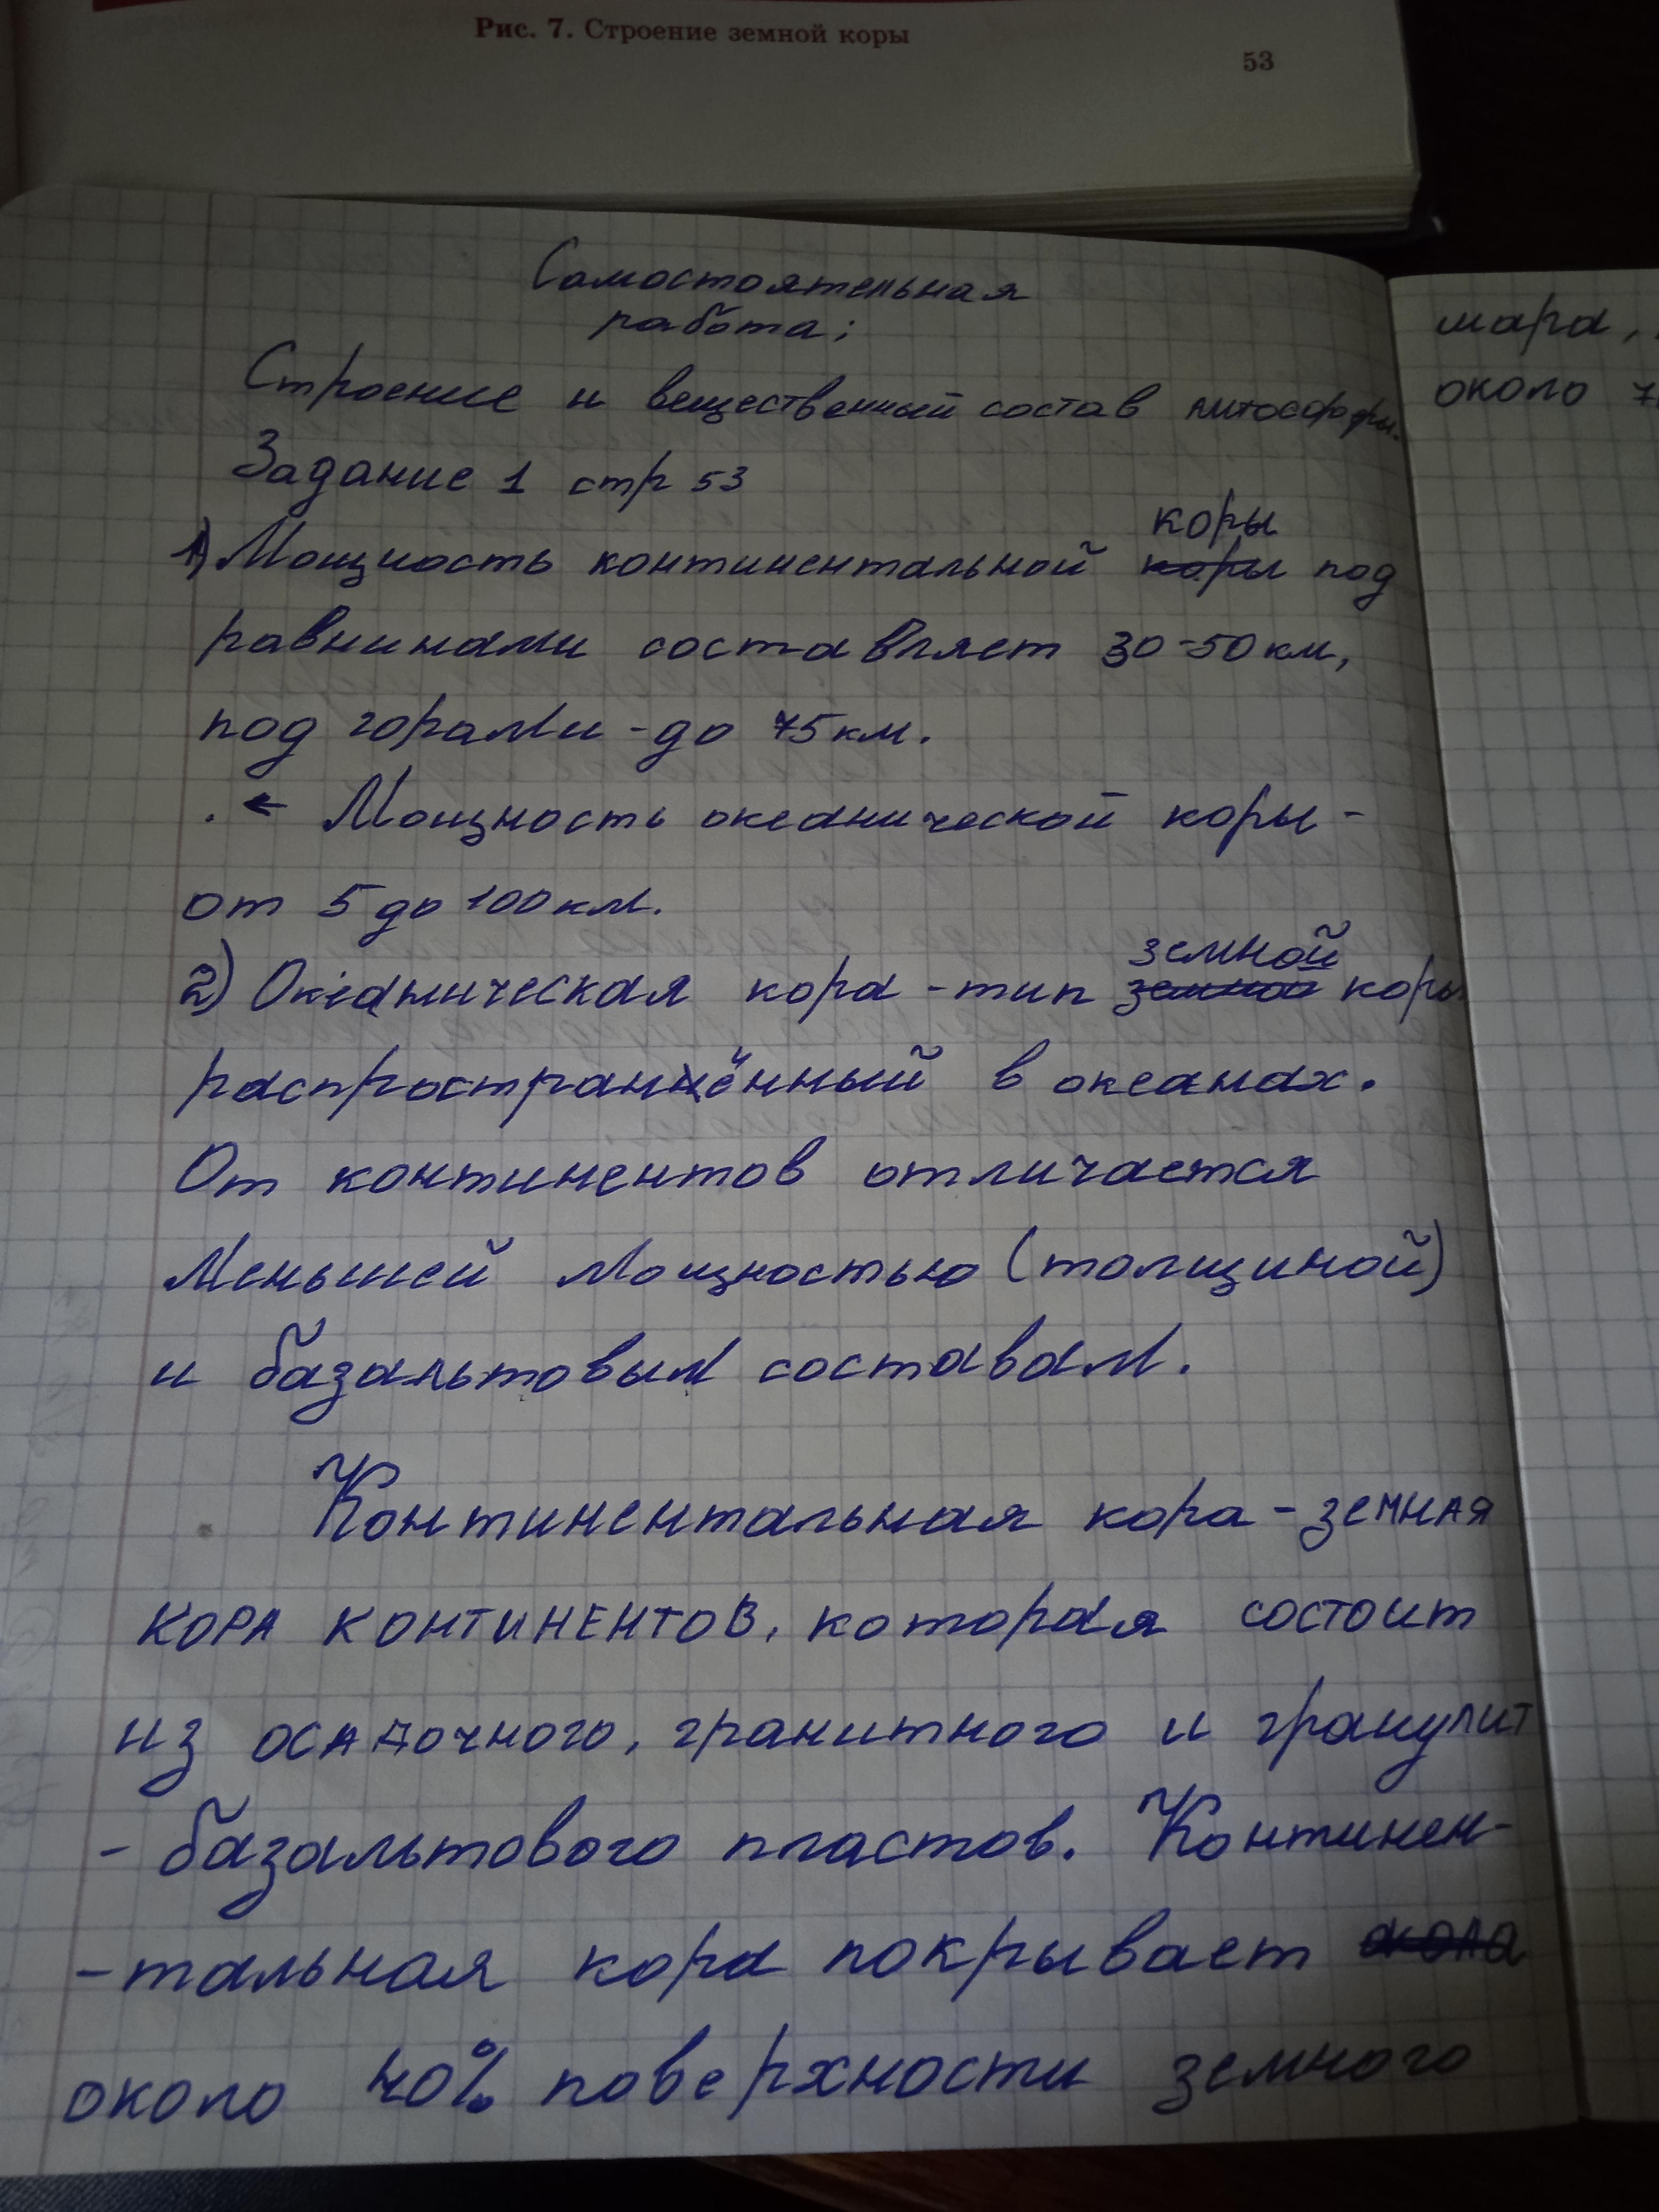 Рис. 7. Строение земной коры
53
Самостоятельная
работа:
Строение и вещественный состав литосферы.
Задание 1 стр 53
1) Мощность континентальной коры коры под
равнинами составляет 30-50 км,
под горами - до 75 км.
. ← Мощность океанической коры -
от 5 до 100 км.
2) Океаническая кора - тип земной земной коры
распространённый в океанах.
От континентов отличается
меньшей мощностью (толщиной)
и базальтовым составам.
Континентальная кора - земная
кора континентов, которая состоит
из осадочного, гранитного и гранулит
- базальтового пластов. Континен-
-тальная кора покрывает
около 40% поверхности земного
шара,
около